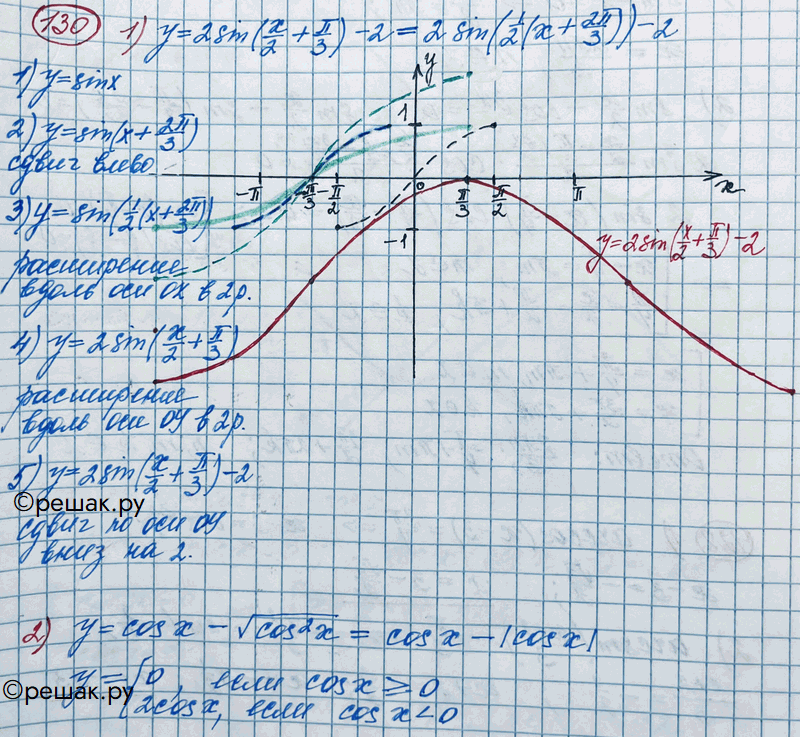 130 1) y=2sin(x/2+π/3)-2=2sin(1/2(x+2π/3))-2
1) y=sinx
2) y=sin(x+2π/3)
сдвиг влево
3) y=sin(1/2(x+2π/3))
расширение
вдоль оси OX в 2р.
4) y=2sin(x/2+π/3)
расширение
вдоль оси OY в 2р.
5) y=2sin(x/2+π/3)-2
©решак.ру
сдвиг по оси OY
вниз на 2.
y
1
-π
-π/2
0
π/3
π/2
π
x
-1
y=2sin(x/2+π/3)-2
2) y=cosx-√cos²x=cosx-|cosx|
y={0, если cosx≥0
©решак.ру
{2cosx, если cosx<0